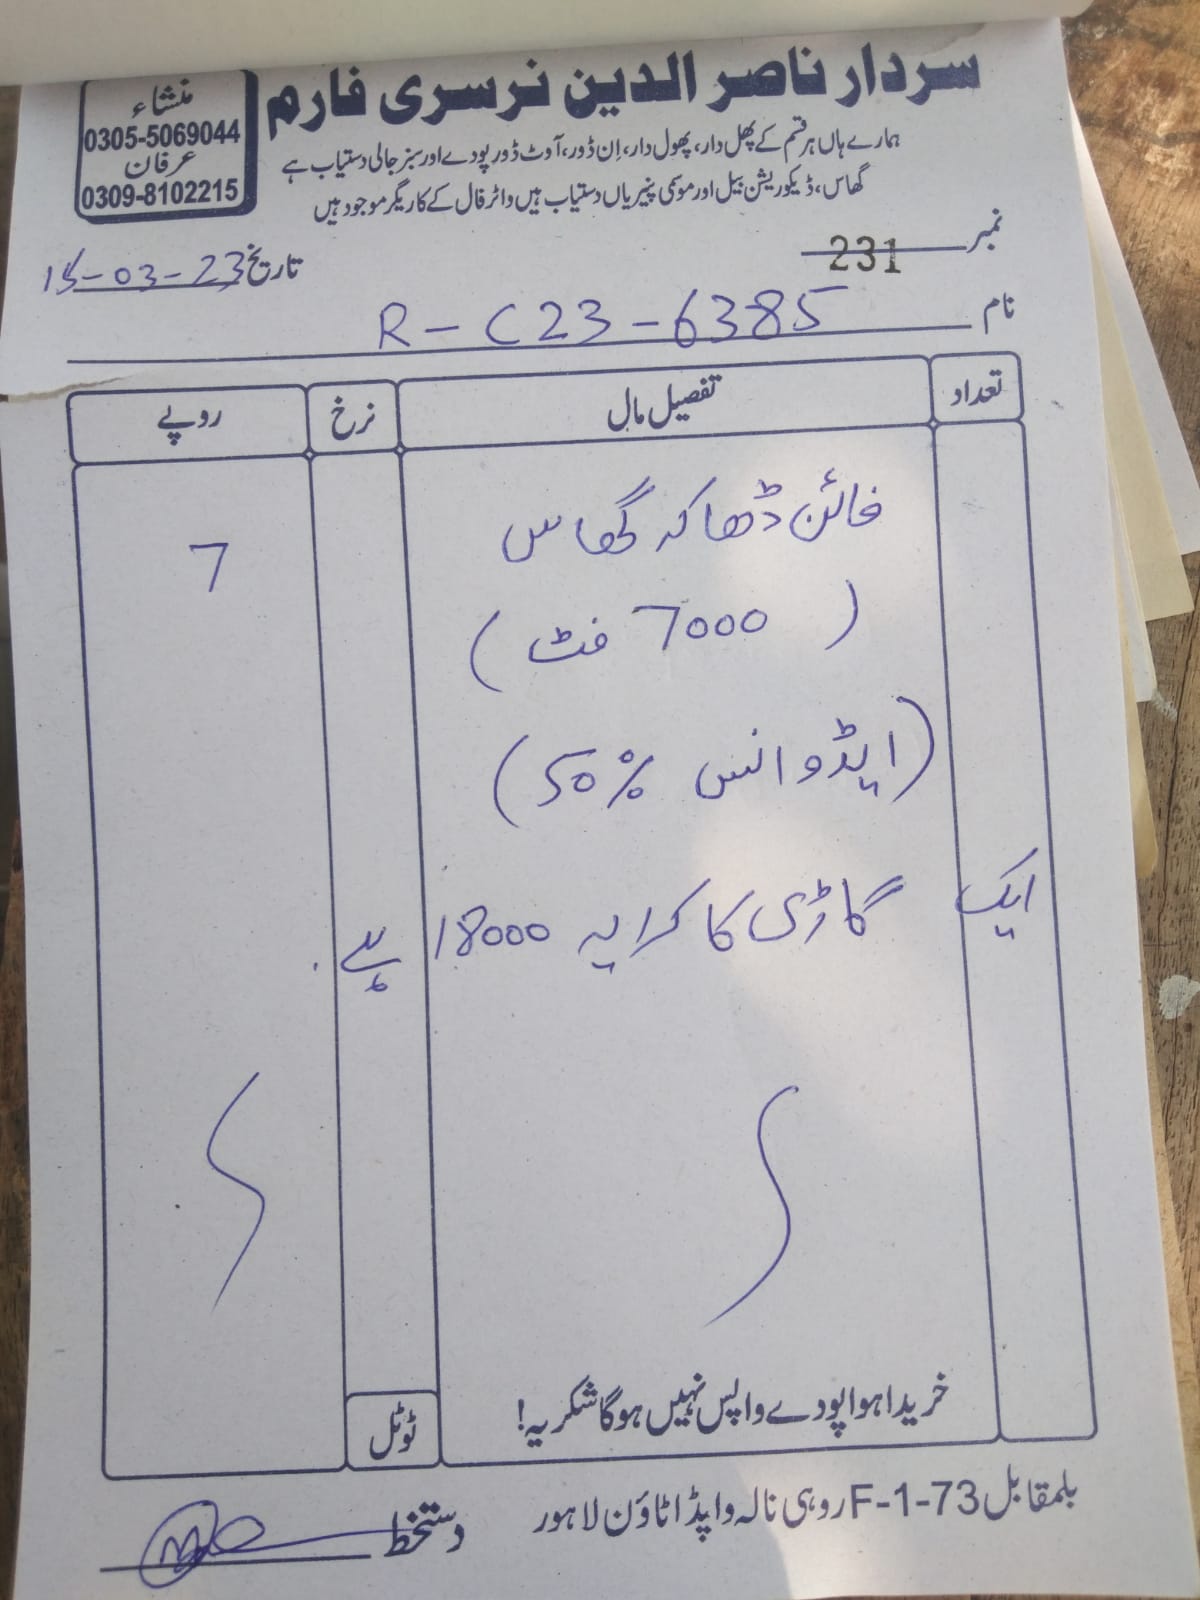 سردار ناصر الدین نرسری فارم
منشاء
0305-5069044
عرفان
0309-8102215
ہمارے ہاں ہر قسم کے پھل دار، پھول دار، اِن ڈور، آوٹ ڈور پودے اور سبز جالی دستیاب ہے
گھاس، ڈیکوریشن بیل اور موسمی پنیریاں دستیاب ہیں واٹر فال کے کاریگر موجود ہیں
نمبر 231
تاریخ 15-03-23
نام R-C23-6385
تعداد تفصیل مال نرخ روپے
فائن ڈھاکہ گھاس 7
(7000 فٹ)
(ایڈوانس 50%)
ایک گاڑی کا کرایہ 18000 ہے.
خریدا ہوا پودے واپس نہیں ہوگا شکریہ!
ٹوٹل
بلمقابل F-1-73 روہی نالہ واپڈا ٹاؤن لاہور
دستخط